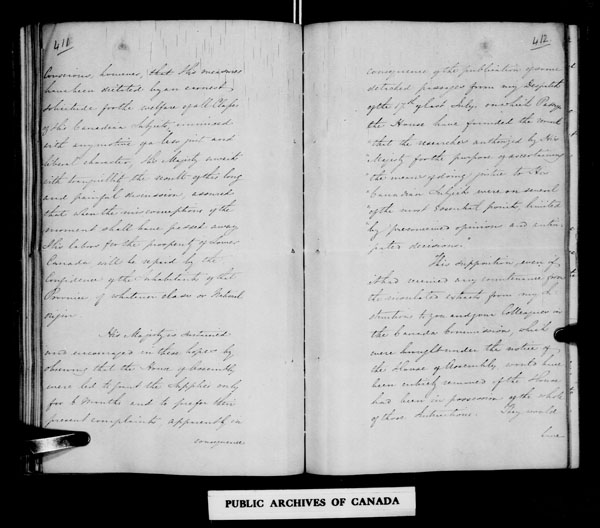 411
Conscious, however, that His measures
have been dictated by an earnest
solicitude for the welfare of all Classes
of His Canadian Subjects, unmixed
with any motive of a less just and
liberal character, His Majesty awaits
with tranquillity the result of this long
and painful discussion, assured
that when the misconceptions of the
moment shall have passed away
His labors for the prosperity of Lower
Canada will be repaid by the
Confidence of the inhabitants of that
Province of whatever class or National
origin.
His Majesty is sustained
and encouraged in these hopes by
observing that the House of Assembly
were led to grant the Supplies only
for 6 Months and to prefer their
present complaints, apparently, in
consequence
412
consequence of the publication of some
detached passages from my Despatch
of the 17th of last July, on which Passages
the House have founded the
"that the researches authorized by His
Majesty for the purpose of ascertaining
"the means of doing justice to His
"Canadian Subjects were on several
"of the most essential points, limited
"by preconceived opinions and antici-
pated decisions."
This supposition, even if
it had received any countenance from
the insulated extracts from my In-
structions to you and your Colleagues in
the Canada Commission, which
were brought under the notice of
the House of Assembly, would have
been entirely removed if the House
had been in possession of the whole
of those Instructions. They would
have
PUBLIC ARCHIVES OF CANADA